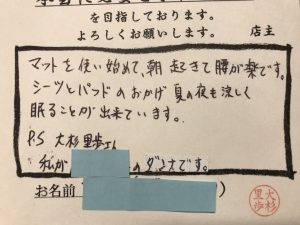 を目指しております。
よろしくお願いします。 店主
マットを使い始めて、朝起きて腰が楽です。
シーツとパッドのおかげ夏の夜も涼しく
眠ることが出来ています。
P.S 大杉里歩さん
私が
の大です。
お名前
大杉
里歩